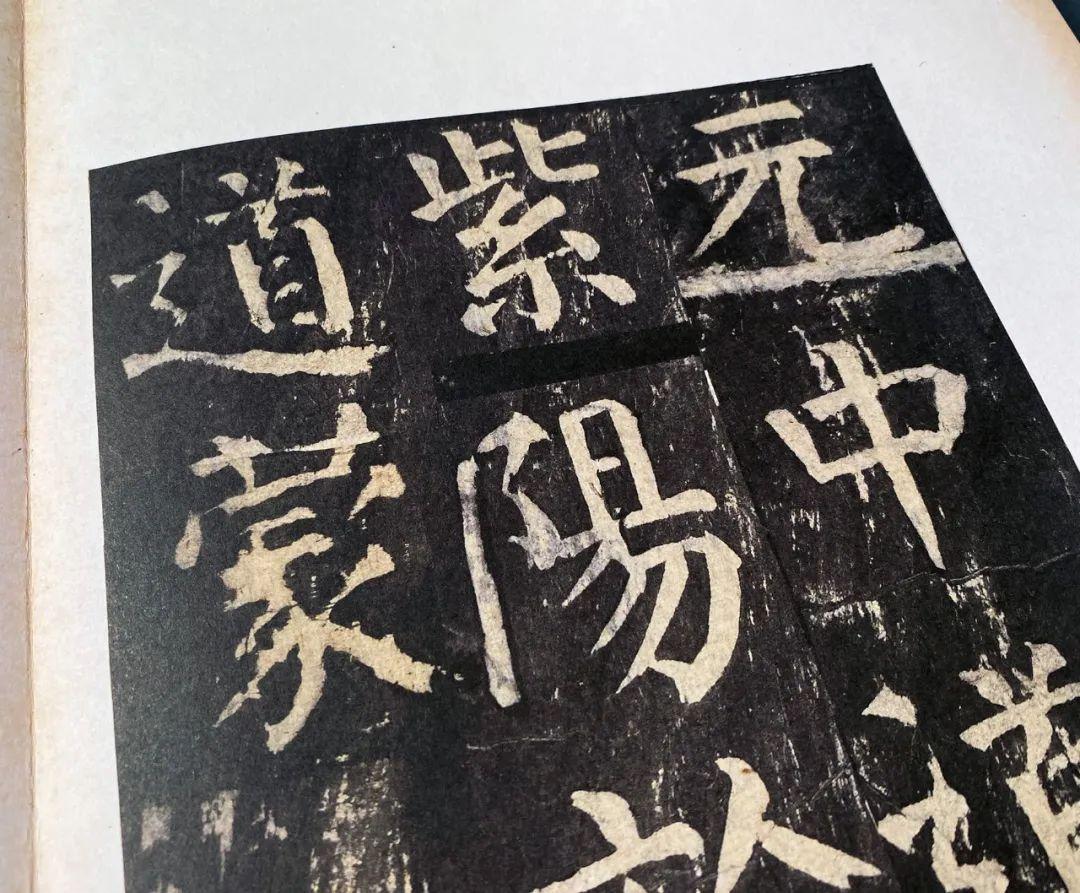 元中
紫陽於
道蒙